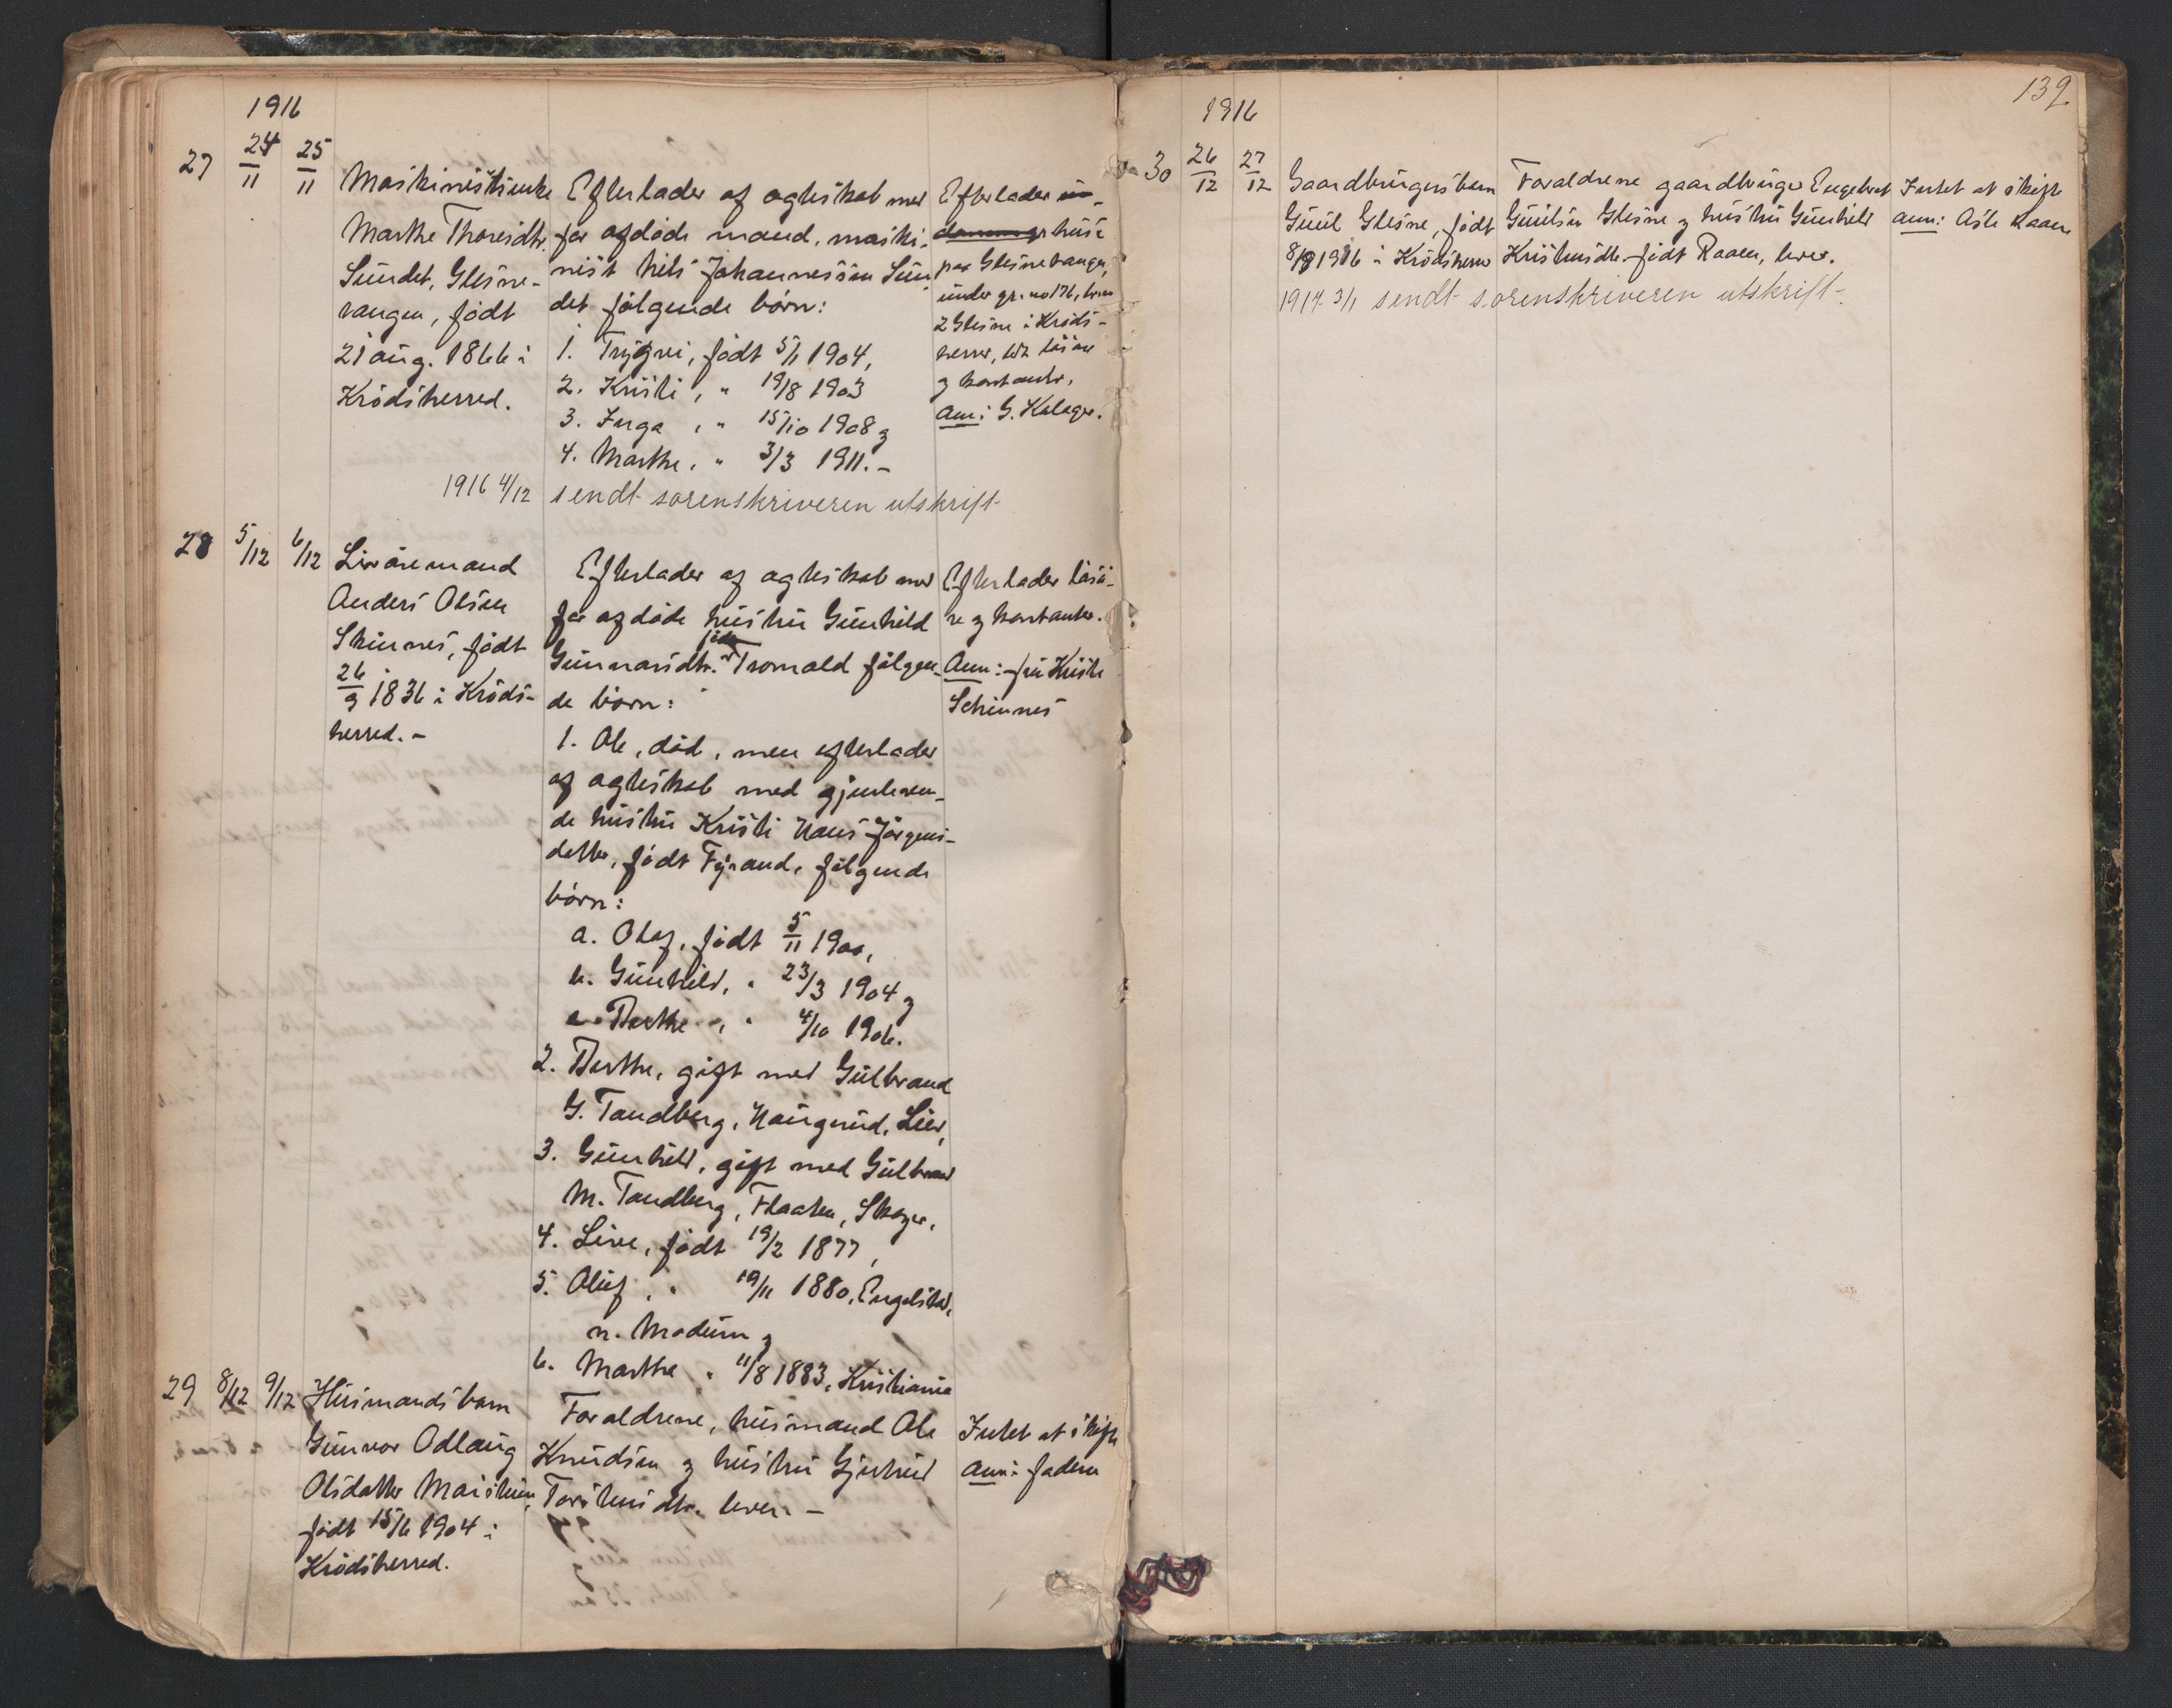 1916
27 24/11 25/11
Maskinistenke
Marthe Thoresdtr.
Sundet, Glesne-
vangen, født
21 aug. 1866 i
Krødsherred.
Efterlader af ægteskab med
før afdøde mand, maski-
nist Nils Johannessøn Sun-
det følgende børn:
1. Trygvi, født 5/1 1904,
2. Kristi, " 19/8 1903
3. Inga, " 15/10 1908 og
4. Marthe, " 3/3 1911. -
Efterlader
hus
paa Glesnevangen,
under gr. no 176, brno
2 Glesne i Kräds-
herred, løsøre
og kontanter.
Anm: G. Kalager.
1916 4/12 sendt sorenskriveren utskrift
28 5/12 6/12
Livøremand
Anders Olsen
Skinnes, født
26/9 1836 i Kröds-
herred. -
Efterlader af ægteskab med
før afdøde hustru Gunhild
Gunnarsdtr. født Tromald følgen-
de børn:
1. Ole, død, men efterlader
af ægteskab med gjenleven-
de hustru Kristi Hans Jørgens-
datter, født Fyrand, følgende
børn:
a. Olaf, født 5/11 1900,
b. Gunhild, " 23/3 1904 og
c. Berthe, " 4/10 1906.
2. Berthe, gift med Gulbrand
G. Tandberg, Haugerud, Lier,
3. Gunhild, gift med Gulbrand
M. Tandberg, Flaaten, Skoger,
4. Live, født 19/2 1877,
5. Oluf, " 19/11 1880, Engelstad,
n. Modum og
6. Marthe " 11/8 1883, Kristiania
Efterlader løsø-
re og kontanter.
Anm: fru Kristi
Schinnes
29 8/12 9/12
Husmandsbarn
Gunvor Odlaug
Olsdatter Marstein,
født 15/6 1904 i
Krødsherred.
Foraldrene, husmand Ole
Knudsen og hustru Gjertrud
Torstensdtr. lever. -
Intet at skifte
Anm: faderen
139
1916
30 26/12 27/12
Gaardbrugersbarn
Guul Glesne, født
8/9 1916 i Krödsherred
Foraldrene gaardbruger Engebret
Guulsen Glesne og hustru Gunhild
Kristensdtr. født Raaen, lever.
Intet at skifte
Anm: Asle Raaen
1917 3/1 sendt sorenskriveren utskrift.